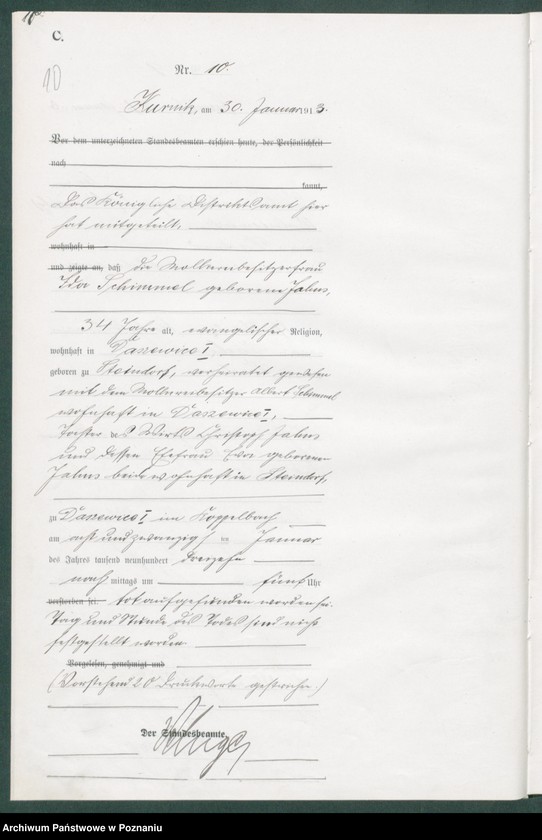 C.
10
Nr. 10.
Kurnik, am 30. Januar 1913.
Vor dem unterzeichneten Standesbeamten erschien heute, der Persönlichkeit
nach
kannt,
Das Königliche Distriktsamt hier
hat mitgeteilt,
wohnhaft in
und zeigte an, daß die Molkereibesitzerfrau
Ida Schimmel geborene Jahns,
34 Jahre alt, evangelischer Religion,
wohnhaft in Daszewice I
geboren zu Steindorf, verheiratet gewesen
mit dem Molkereibesitzer Albert Schimmel
wohnhaft in Daszewice I,
Tochter des Wirts Christoph Jahns
und dessen Ehefrau geborene
Jahns beide wohnhaft in Steindorf,
zu Daszewice I im Koppelbach
am acht und zwanzigsten Januar
des Jahres tausend neunhundert dreizehn
nach mittags um fünf Uhr
verstorben sei. tot aufgefunden worden sei.
Tag und Stunde des Todes sind nicht
festgestellt worden
Vorgelesen, genehmigt und
(Vorstehend 20 Druckworte gestrichen.)
Der Standesbeamte.
Archiwum Państwowe w Poznaniu